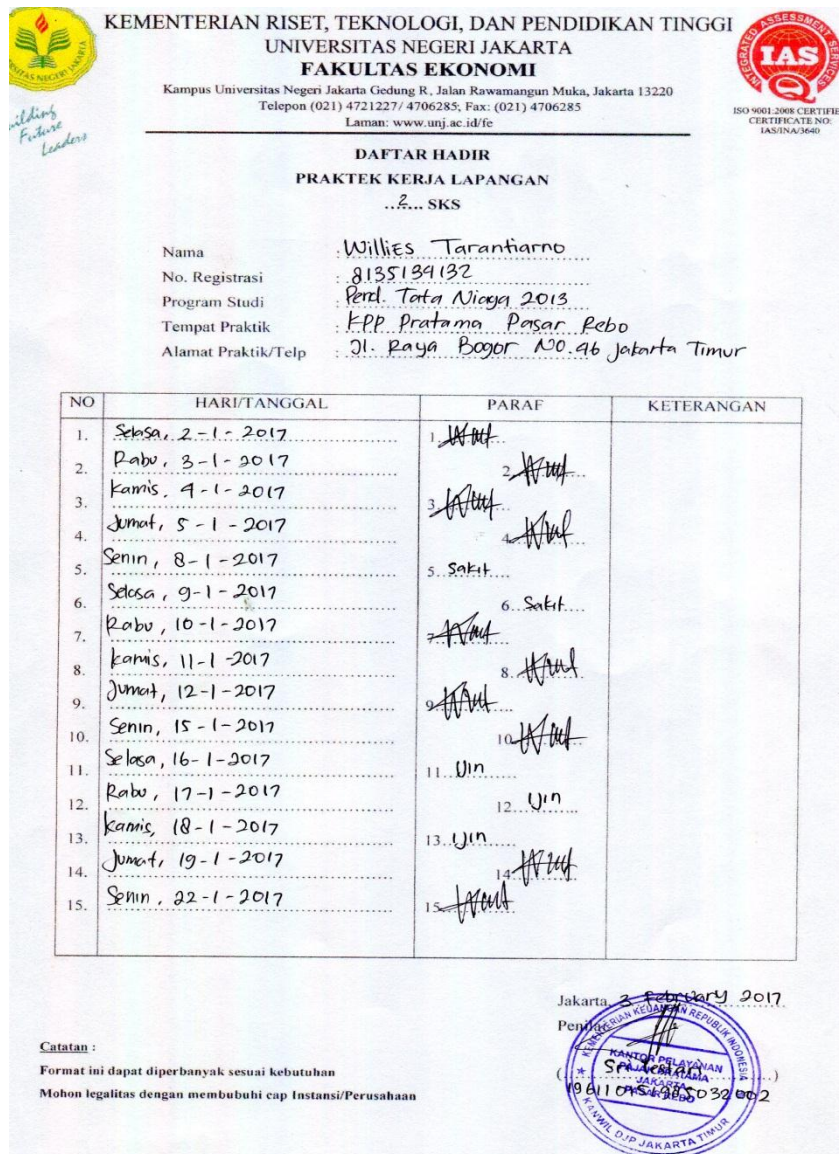 KEMENTERIAN RISET, TEKNOLOGI, DAN PENDIDIKAN TINGGI
UNIVERSITAS NEGERI JAKARTA
FAKULTAS EKONOMI
Kampus Universitas Negeri Jakarta Gedung R, Jalan Rawamangun Muka, Jakarta 13220
Telepon (021) 4721227/ 4706285, Fax: (021) 4706285
Laman: www.unj.ac.id/fe
Building
Future
Leaders
IAS
ISO 9001:2008 CERTIFIE
CERTIFICATE NO:
IAS/INA/3640
DAFTAR HADIR
PRAKTEK KERJA LAPANGAN
..2... SKS
Nama : Willies Tarantiarno
No. Registrasi : 8135134132
Program Studi : Pend. Tata Niaga 2013
Tempat Praktik : KPP Pratama Pasar Rebo
Alamat Praktik/Telp : Jl. Raya Bogor No.46 Jakarta Timur
NO HARI/TANGGAL PARAF KETERANGAN
1. Selasa, 2-1-2017 1.
2. Rabu, 3-1-2017 2.
3. Kamis, 4-1-2017 3.
4. Jumat, 5-1-2017 4.
5. Senin, 8-1-2017 5. Sakit
6. Selasa, 9-1-2017 6. Sakit
7. Rabu, 10-1-2017 7.
8. Kamis, 11-1-2017 8.
9. Jumat, 12-1-2017 9.
10. Senin, 15-1-2017 10.
11. Selasa, 16-1-2017 11. Ijin
12. Rabu, 17-1-2017 12. Ijin
13. Kamis, 18-1-2017 13. Ijin
14. Jumat, 19-1-2017 14.
15. Senin, 22-1-2017 15.
Jakarta, 3 February 2017
Penilai,
(Sri Lestari)
KEMENTERIAN KEUANGAN REPUBLIK INDONESIA
KANTOR PELAYANAN
PAJAK PRATAMA
JAKARTA
PASAR REBO
KANWIL DJP JAKARTA TIMUR
Catatan :
Format ini dapat diperbanyak sesuai kebutuhan
Mohon legalitas dengan membubuhi cap Instansi/Perusahaan